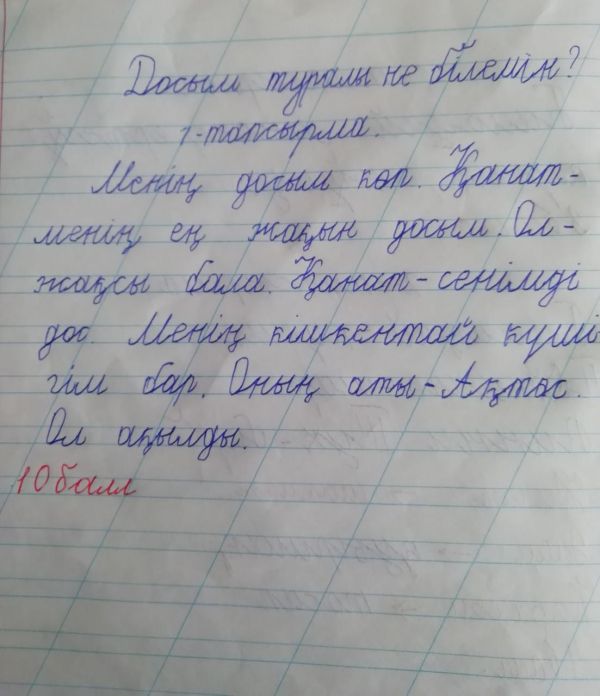 Досым туралы не білемін?
1-тапсырма.
Менің досым көп. Қанат-
менің ең жақын досым. Ол-
жақсы бала. Қанат-сенімді
дос. Менің кішкентай күші
гім бар. Оның аты-Ақтөс.
Ол ақылды.
10 балл